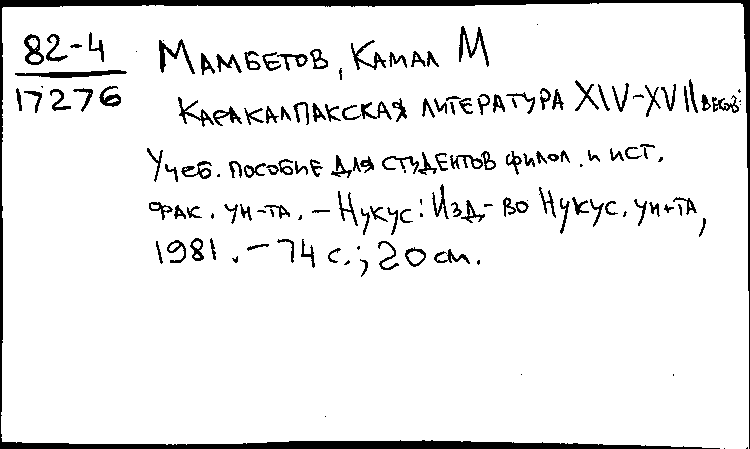 82-4
17276
Мамбетов, Камал М
Каракалпакская литература XIV-XVII веков:
Учеб. пособие для студентов филол. и ист.
фак. ун-та. – Нукус: Изд-во Нукус. ун-та,
1981. – 74 с.; 20 см.